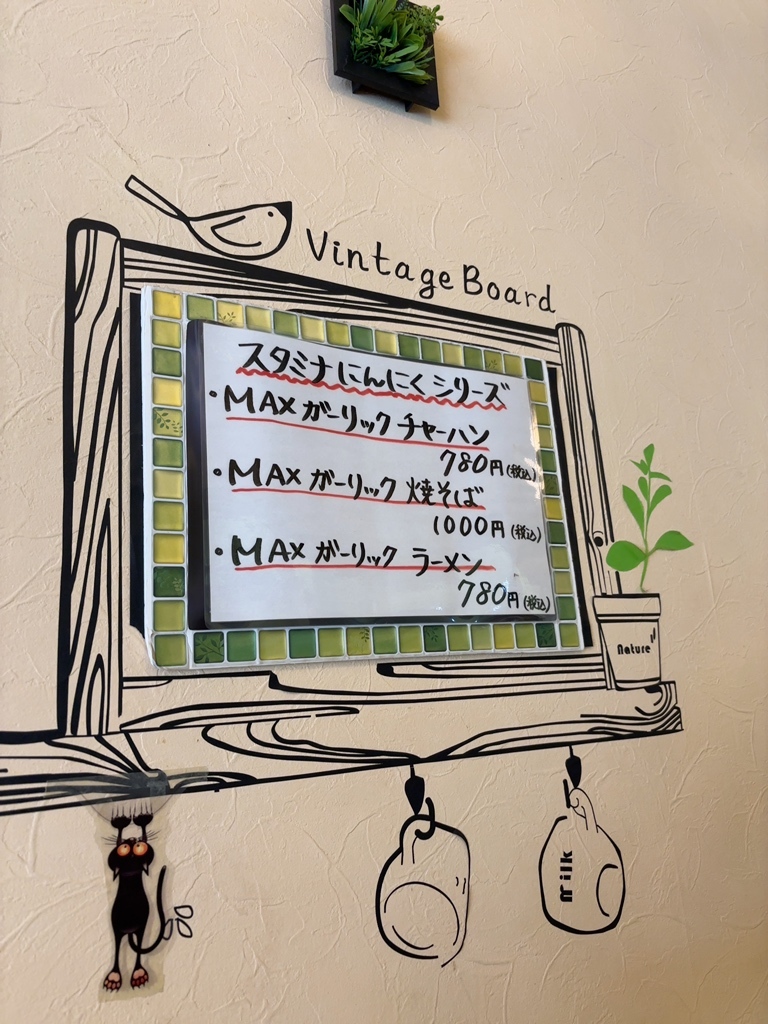 Vintage Board
スタミナにんにくシリーズ
・MAXガーリックチャーハン
780円(税込)
・MAXガーリック焼そば
1000円(税込)
・MAXガーリックラーメン
780円(税込)
Nature
milk